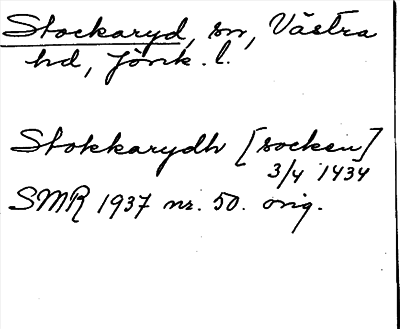 Stockaryd, sn, Västra
hd, Jönk. l.
Stokkarydh [socken]
3/4 1434
SMR 1937 nr. 50. orig.